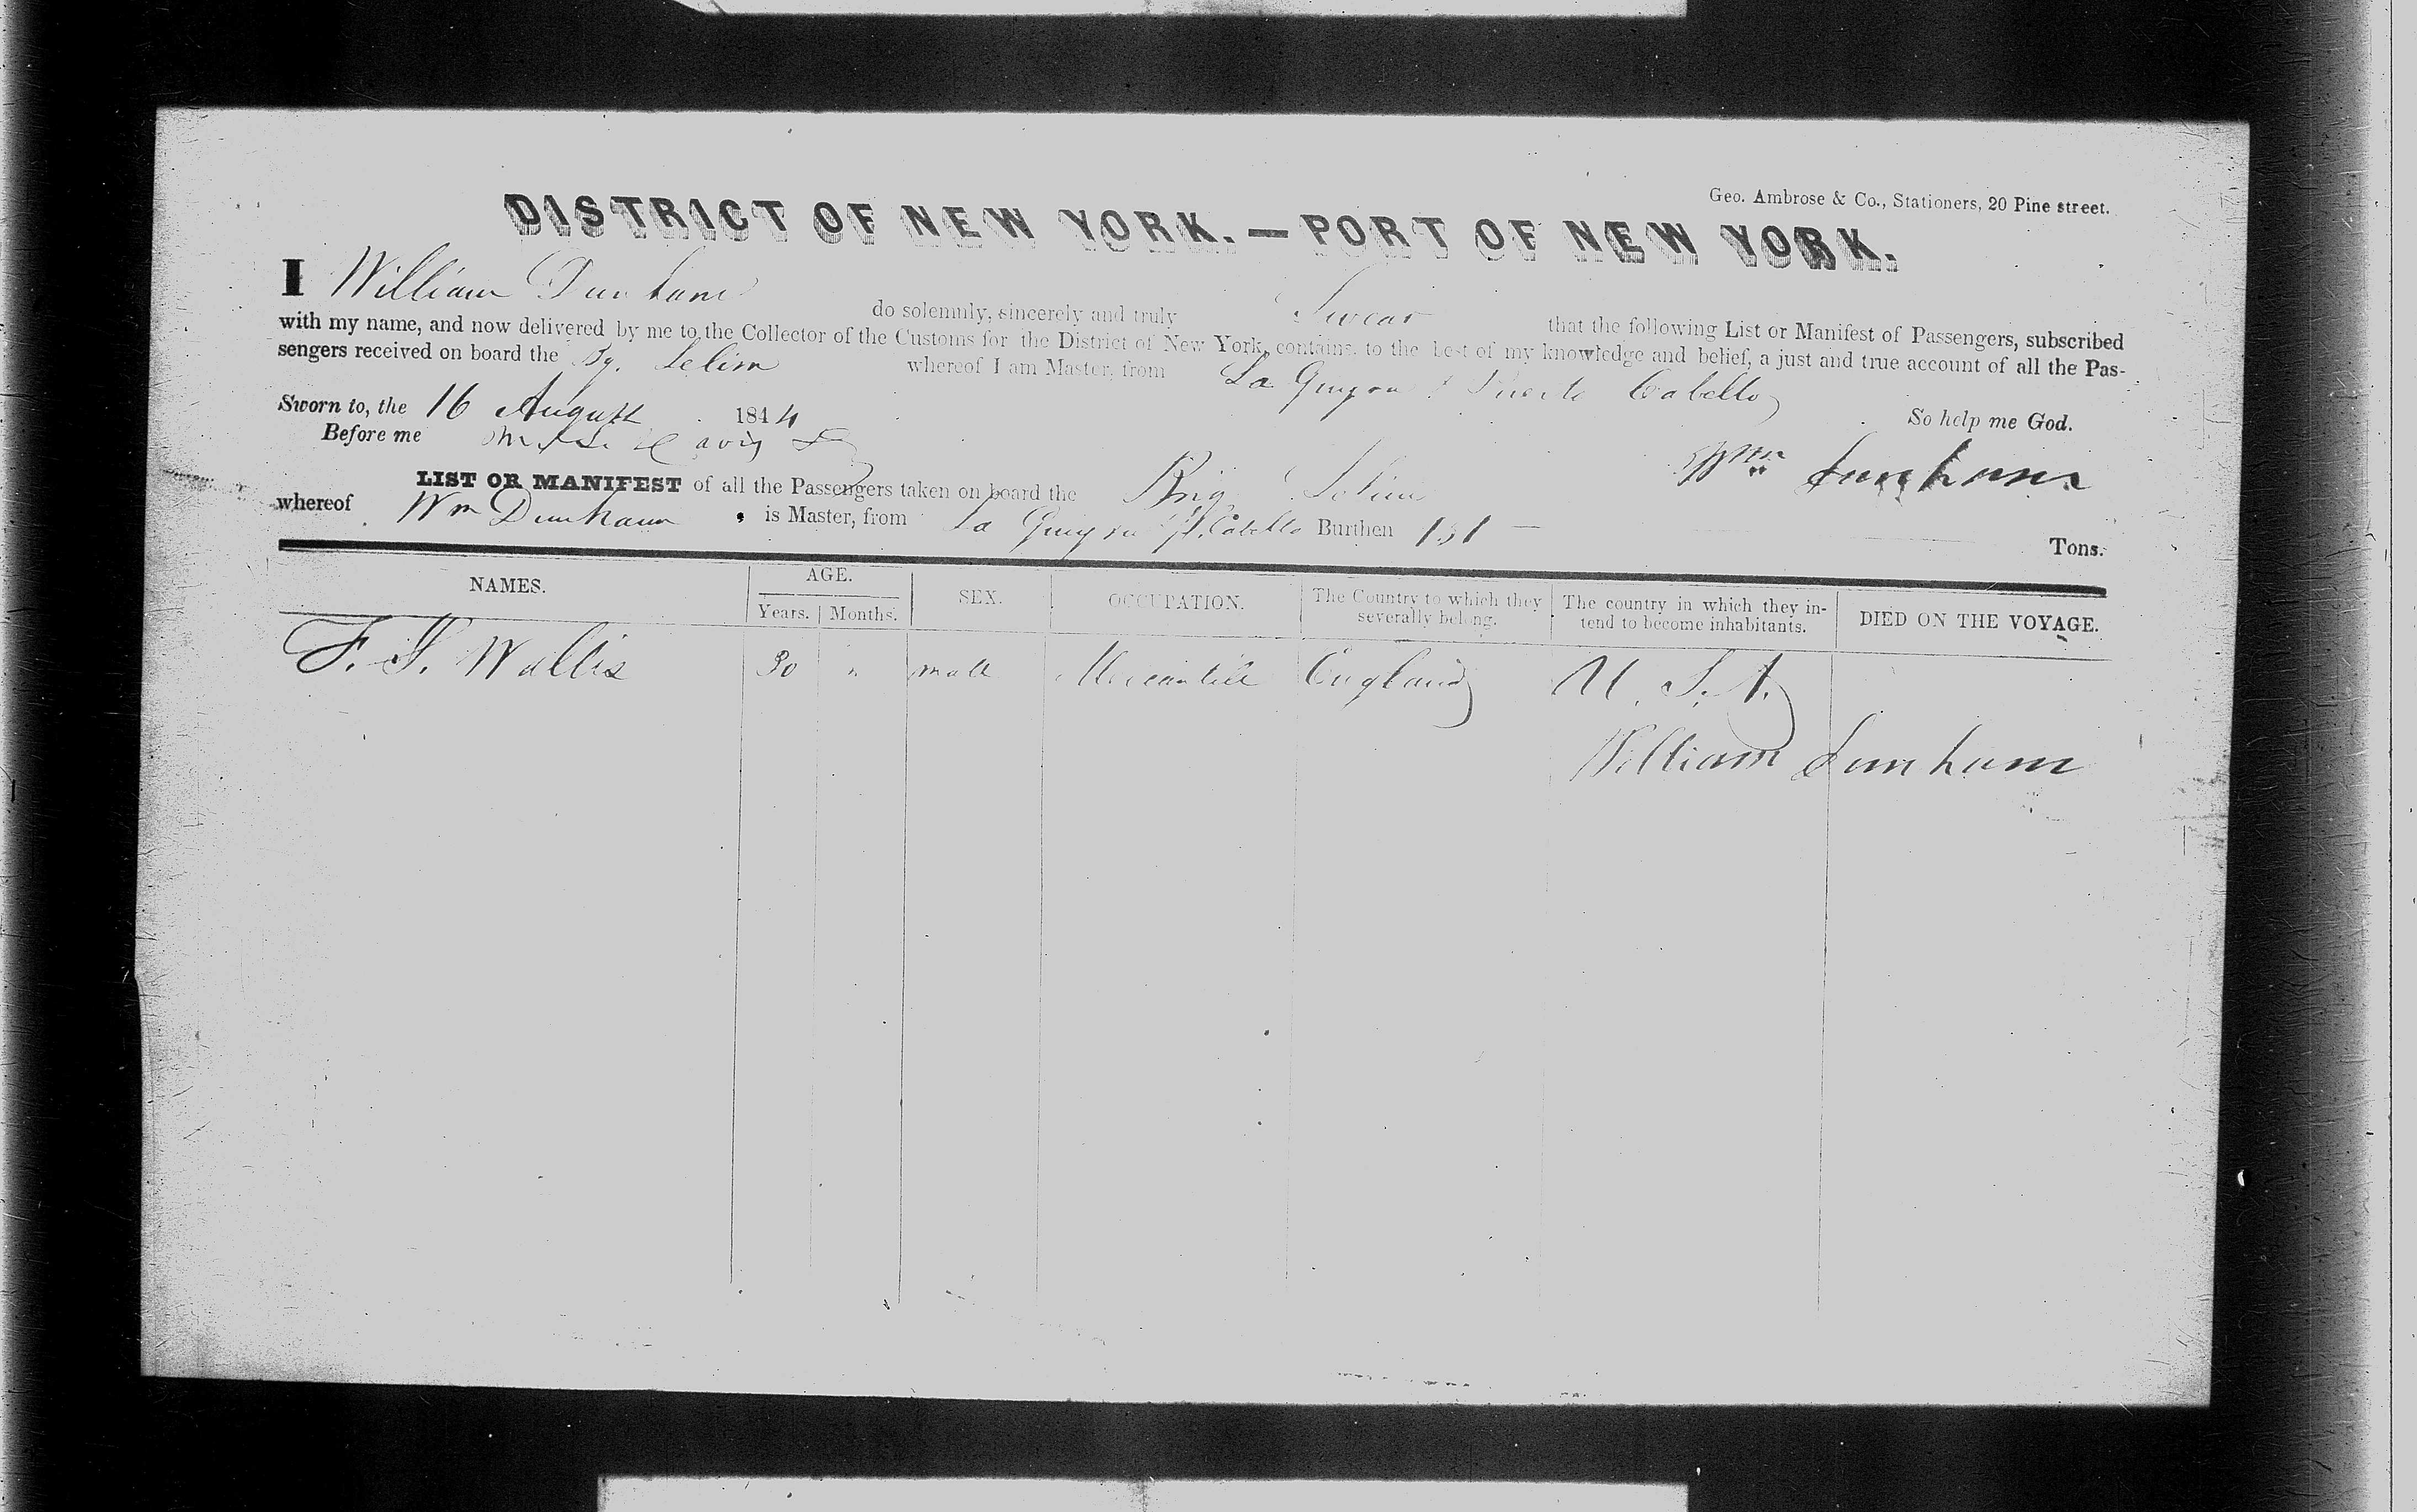 Geo. Ambrose & Co., Stationers, 20 Pine street.
DISTRICT OF NEW YORK.—PORT OF NEW YORK.
I William Dunham do solemnly, sincerely and truly Swear that the following List or Manifest of Passengers, subscribed
with my name, and now delivered by me to the Collector of the Customs for the District of New York, contains, to the best of my knowledge and belief, a just and true account of all the Pas-
sengers received on board the Bg. Selim whereof I am Master, from La Guayra & Puerto Cabello
So help me God.
Sworn to, the 16 August 1844
Before me
Wm Dunham
LIST OR MANIFEST of all the Passengers taken on board the Brig Selim
whereof Wm Dunham is Master, from La Guayra Pt. Cabello Burthen 131 — Tons.
NAMES. AGE. SEX. OCCUPATION. The Country to which they severally belong. The country in which they in-tend to become inhabitants. DIED ON THE VOYAGE.
Years. Months.
F. S. Wallis 30 " male Mercantile England U. S. A.
William Dunham